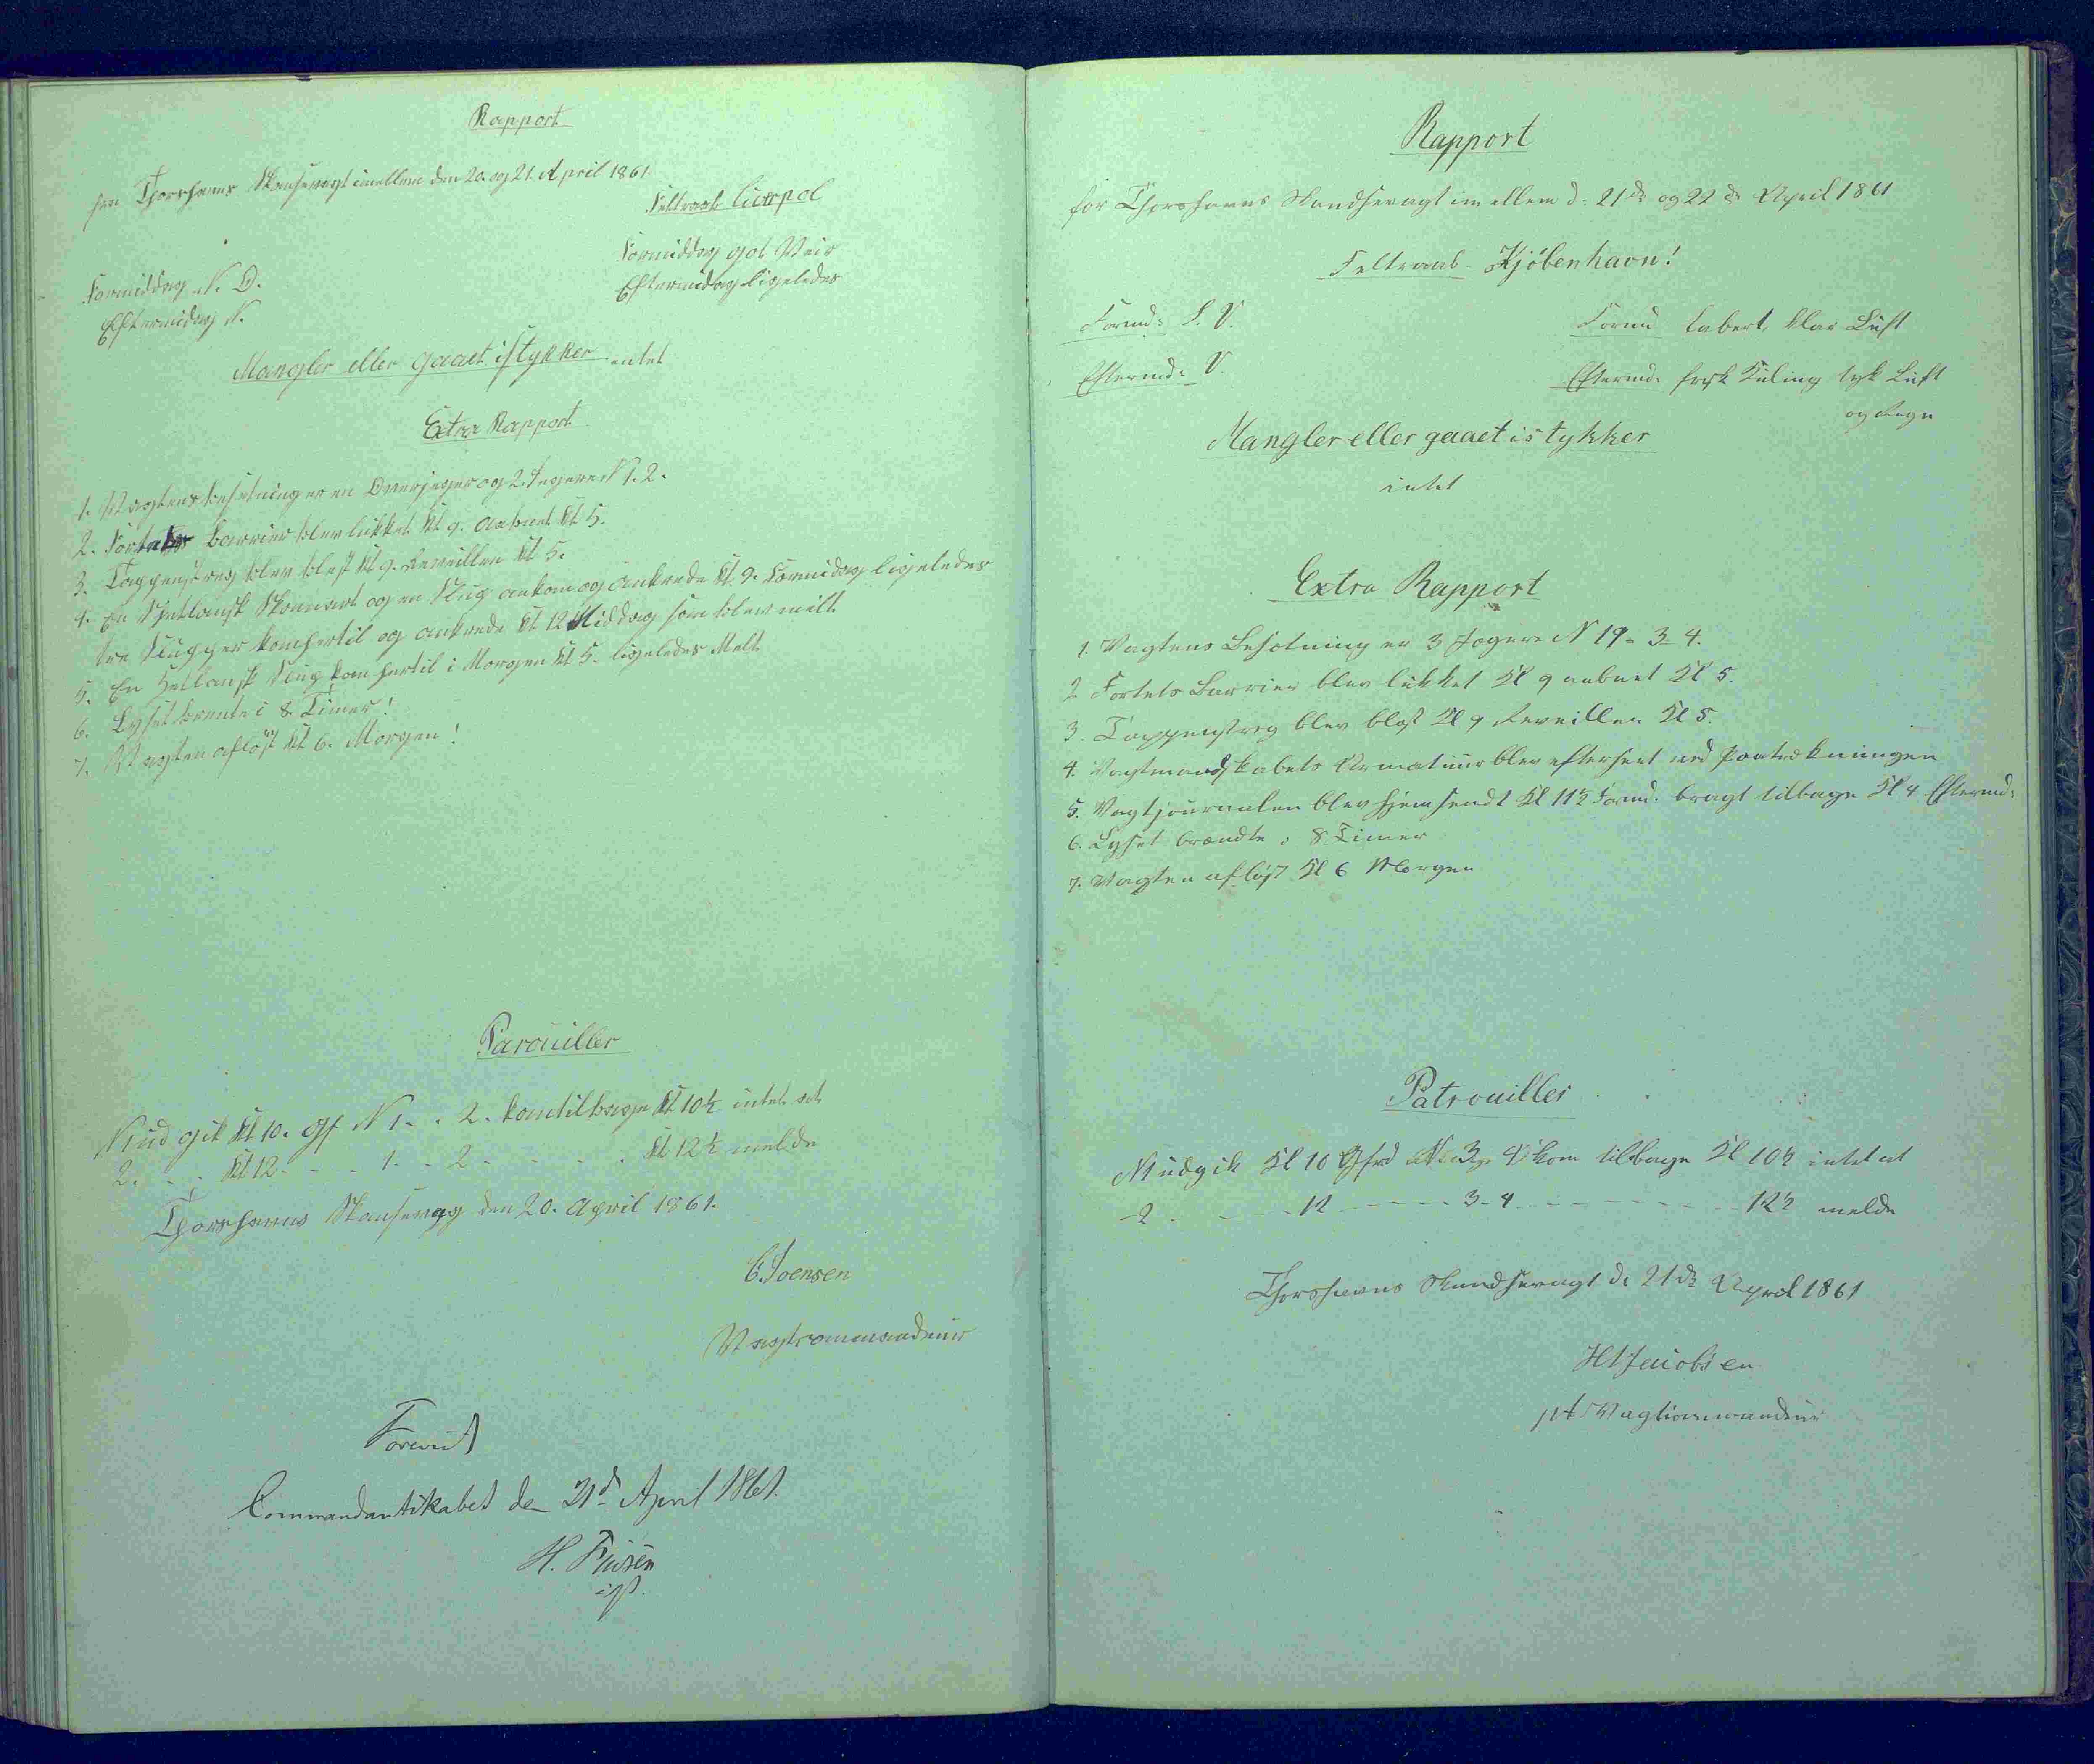 Rapport
fra Thorshavns Skansevagt imellem den 20. og 21. April 1861.
Feltraab Liverpol
Formiddag N. O.
Formiddag got Veir
Eftermidag N.
Eftermidag ligeledes
Mangler eller gaaet istykker intet
Extra Rapport
1. Vagtens besetning er en Overjeger og 2 Jegere N 1. 2.
2. Fortets Barrier blev lukket Kl 9. aabnet Kl 5.
3. Tappenstreg blev blest Kl 9. Reveillen Kl 5.
4. En Skjetlansk Skonnert og en Slug ankom og ankrede Kl. 9. Formidag ligeledes
tre Slugger kom hertil og ankrede Kl 12 Middag som blev melt
5. En Hetlansk Slug kom hertil i Morgen Kl 5. ligeledes Melt
6. Lyset brente i 8. Timer!
7. Vagten afløst Kl 6. Morgen!
Parouiller
N 1 ud gik Kl 10. Gf N 1. . 2. kom tilbage Kl 10½ intet at
2. . . Kl 12. - . . 1. . 2. . . . . Kl 12½ melde
Thorshavns Skansevagt den 20. April 1861.
C. Joensen
Vagtcommandeur
Forevist
Commandantskabet den 21d April 1861.
H.
Rapport
for Thorshavns Skandsevagt imellem d: 21de og 22de April 1861
Feltraab - Kjöbenhavn!
Formd: S. V.
Formd Labert, klar Luft
Eftermd: V.
Eftermd: frisk Kuling tyk Luft
og Regn
Mangler eller gaaet istykker
intet
Extra Rapport
1. Vagtens Besætning er 3 Jægere N 19 - 3 - 4.
2. Fortets Barrier blev lukket Kl 9 aabnet Kl 5.
3. Tappenstreg blev blæst Kl 9 Reveillen Kl 5.
4. Vagtmandskabets Armatuur blev efterseet ved Paatrækningen
5. Vagtjournalen blev hjemsendt Kl 11½ Formd. bragt tilbage Kl 4 Eftermd:
6. Lyset brændte i 8 Timer
7. Vagten afløst Kl 6 Morgen
Patrouiller
N 1 udgik Kl 10 Gfrd N 3 4 kom tilbage Kl 10½ intet at
- 2 - - - 12 - - - - 3 - 4 - - - - - - - 12½ melde
Thorshavns Skandsevagt d: 21de April 1861
Jacobsen
pt Vagtcommandeur